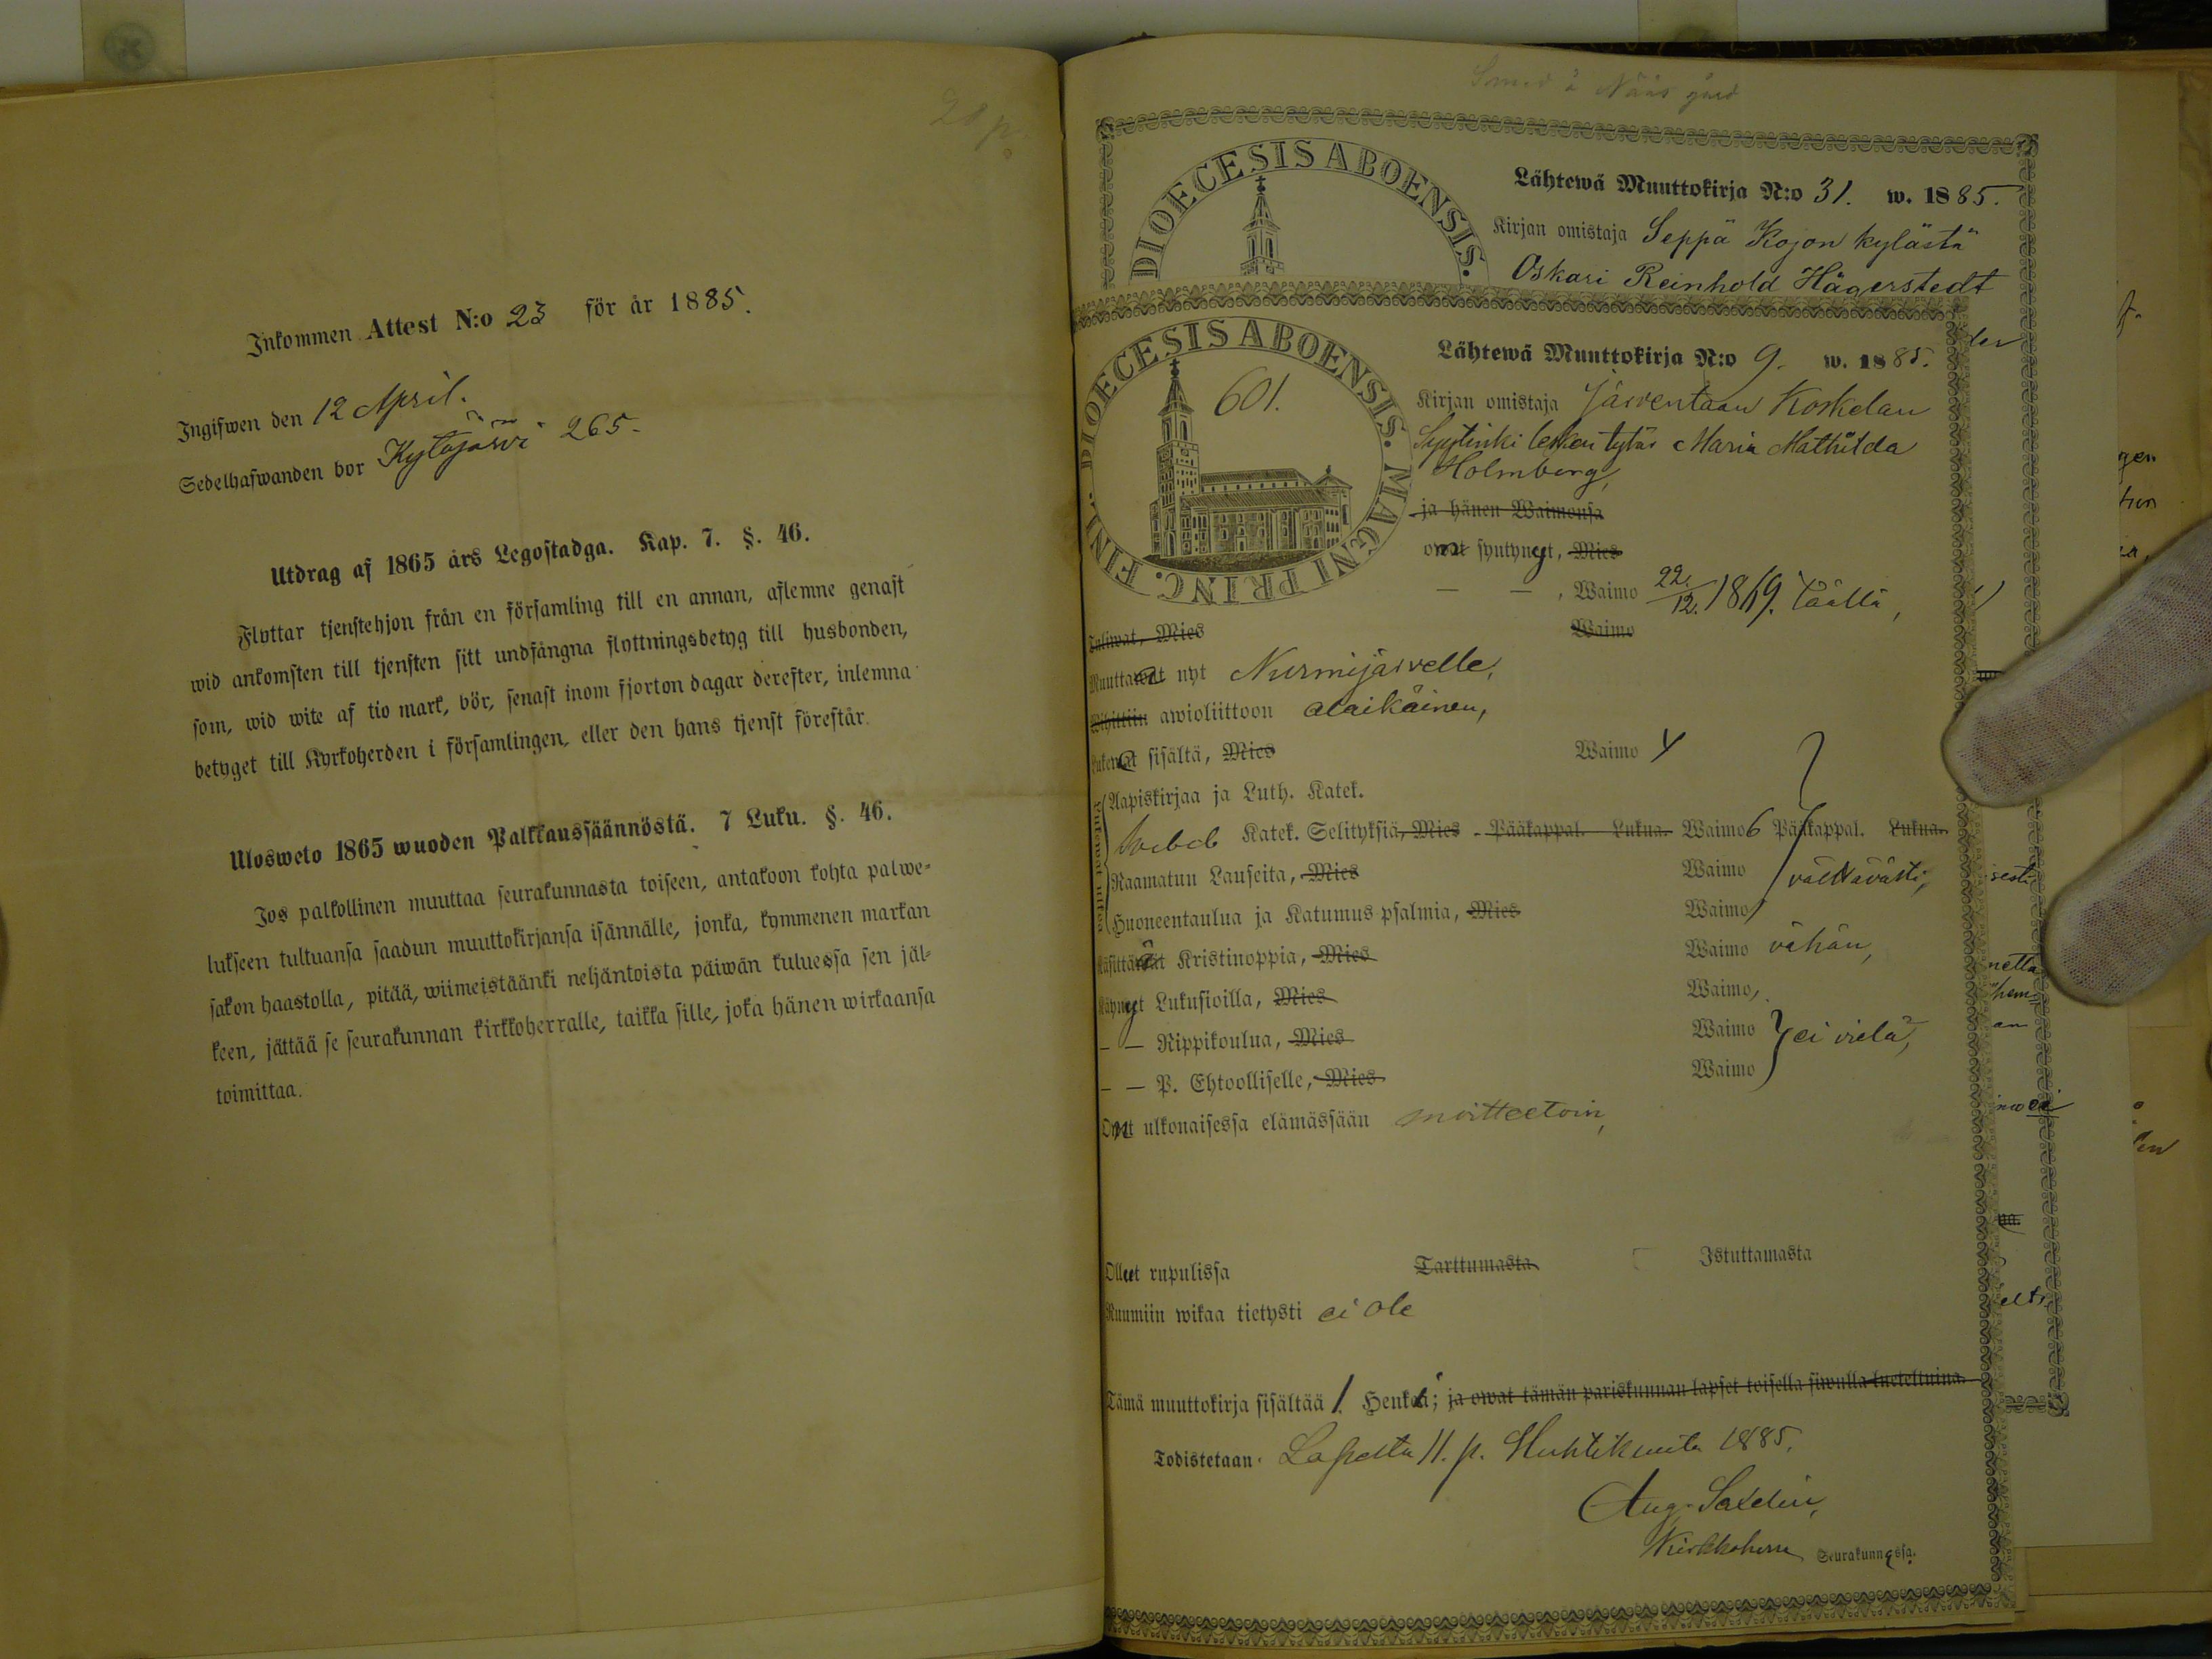 28 p.
Inkommen Attest N:o 23 för år 1885.
Ingifwen den 12 April.
Sedelhafwanden bor Kytäjärvi 265.
Utdrag af 1865 års Legostadga. Kap. 7. §. 46.
Flyttar tjenstehjon från en församling till en annan, aflemne genast
wid ankomsten till tjensten sitt undfångna flyttningsbetyg till husbonden,
som, wid wite af tio mark, bör, senast inom fjorton dagar derefter, inlemna
betyget till Kyrkoherden i församlingen, eller den hans tjenst förestår.
Ulosweto 1865 wuoden Palkkaussäännöstä. 7 Luku. §. 46.
Jos palkollinen muuttaa seurakunnasta toiseen, antakoon kohta palwe-
lukseen tultuansa saadun muuttokirjansa isännälle, jonka, kymmenen markan
sakon haastolla, pitää, wiimeistäänki neljäntoista päiwän kuluessa sen jäl-
keen, jättää se seurakunnan kirkkoherralle, taikka sille, joka hänen wirkaansa
toimittaa.
Smed å Nääs gård
DIOECESIS ABOENSIS.
Lähtewä Muuttokirja N:o 31. w. 1885.
Kirjan omistaja Seppä Kojon kylästä
Oskari Reinhold Hägerstedt
DIOECESIS ABOENSIS. MAGNI PRINC. FINL.
601.
Lähtewä Muuttokirja N:o 9. w. 1885.
Kirjan omistaja Järventaan Koskelan
lesken tytär Maria Mathilda
Holmberg,
ja hänen Waimonsa
on syntynyt, Mies
— — , Waimo 22/12. 1869. täällä,
Tuliwat, Mies Waimo
Muuttaa nyt Nurmijärvelle,
Wihittiin awioliittoon alaikäinen,
Lukee sisältä, Mies Waimo y
Aapiskirjaa ja Luth. Katek.
Katek. Selityksiä, Mies - Pääkappal. Lukua. Waimo 6 Pääkappal. Lukua.
Raamatun Lauseita, Mies Waimo välttävästi,
Huoneentaulua ja Katumus-psalmia, Mies Waimo
Käsittää Kristinoppia, Mies Waimo vähän,
Käynyt Lukusioilla, Mies Waimo,
— — Rippikoulua, Mies Waimo ei vielä,
— — P. Ehtoolliselle, Mies Waimo
On ulkonaisessa elämässään moitteetoin,
Ollut rupulissa Tarttumasta Istuttamasta
Ruumiin wikaa tietysti ei ole
Tämä muuttokirja sisältää 1. Henki; ja owat tämän pariskunnan lapset toisella siwulla lueteltuina.
Todistetaan. Lopella 11. p. Huhtikuuta 1885.
Aug. Saxelin,
Kirkkoherra Seurakunnassa.